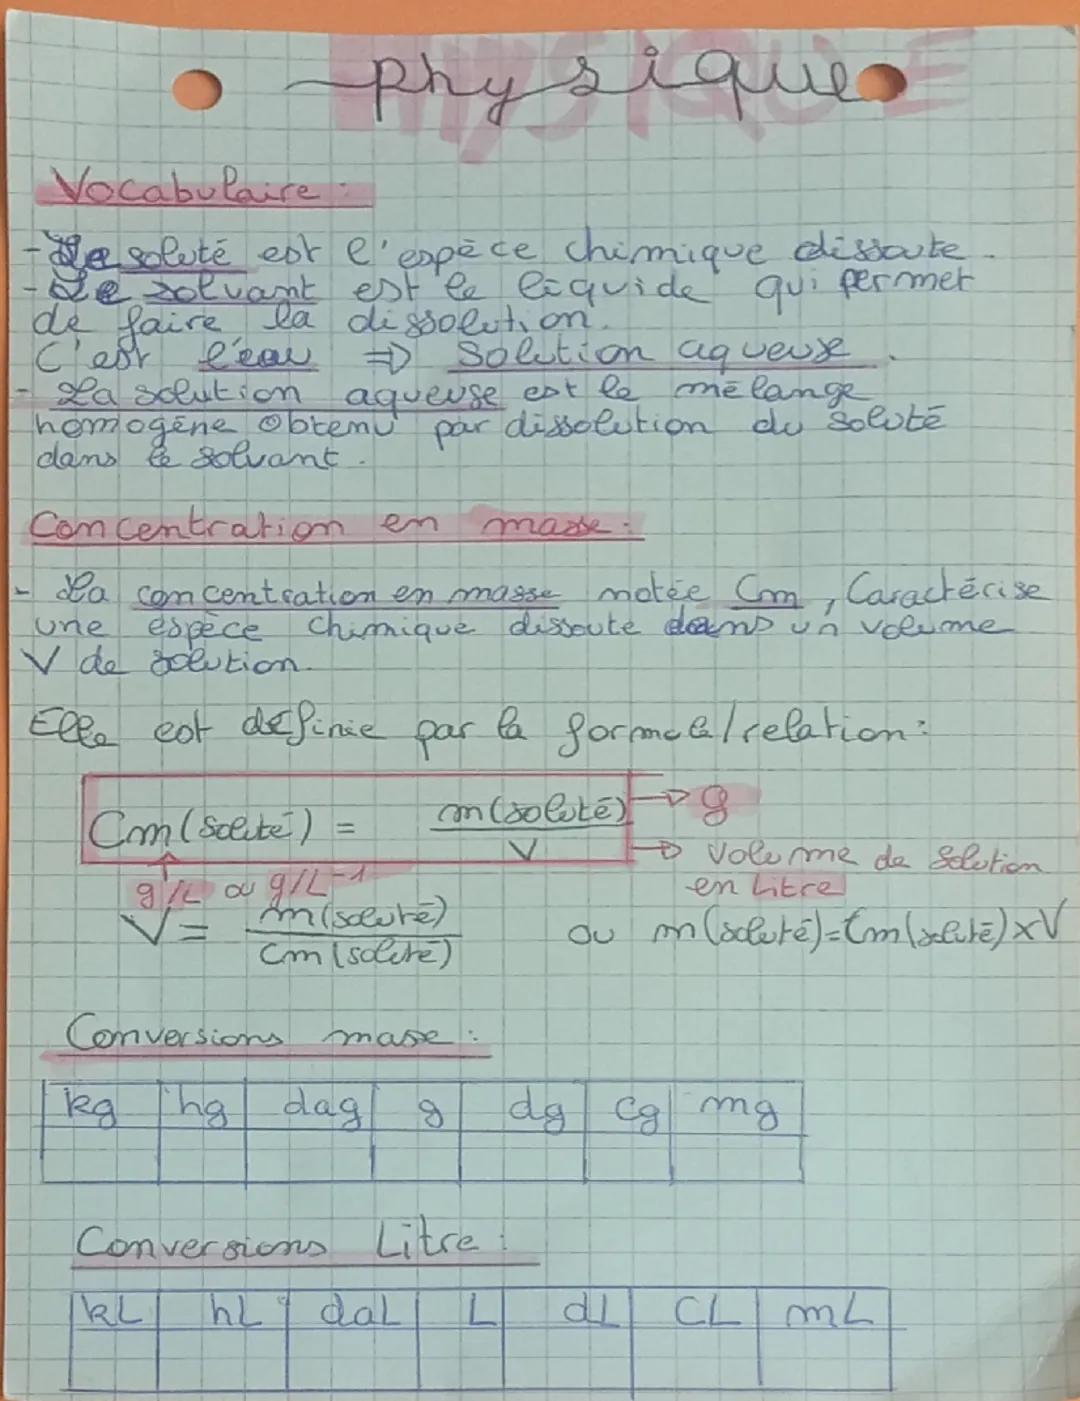 physique
Vocabulaire :
- Le soluté est l'espèce chimique dissoute.
- Le solvant est le liquide qui permet
de faire la dissolution.
C'est l'eau => Solution aqueuse.
- La solution aqueuse est le mélange
homogène obtenu par dissolution du soluté
dans le solvant.
Concentration en masse :
- La concentration en masse notée Cm, Caractérise
une espèce chimique dissoute dans un volume
V de solution.
Elle est définie par la formule/relation :
Cm(soluté) = m(soluté) / V
→ g
→ Volume de Solution
en Litre
g/L ou g/L-1
V = m(soluté) / Cm(soluté) ou m(soluté)=Cm(soluté)xV
Conversions masse :
kg hg dag g dg cg mg
Conversions Litre :
kL hL daL L dL CL mL